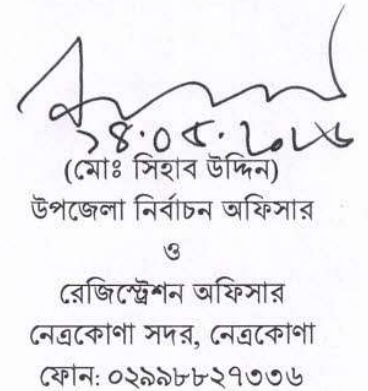 ১৪.০৫.২০২৬
(মোঃ সিহাব উদ্দিন)
উপজেলা নির্বাচন অফিসার
ও
রেজিস্ট্রেশন অফিসার
নেত্রকোণা সদর, নেত্রকোণা
ফোন: ০২৯৯৮৮২৭৩৩৬